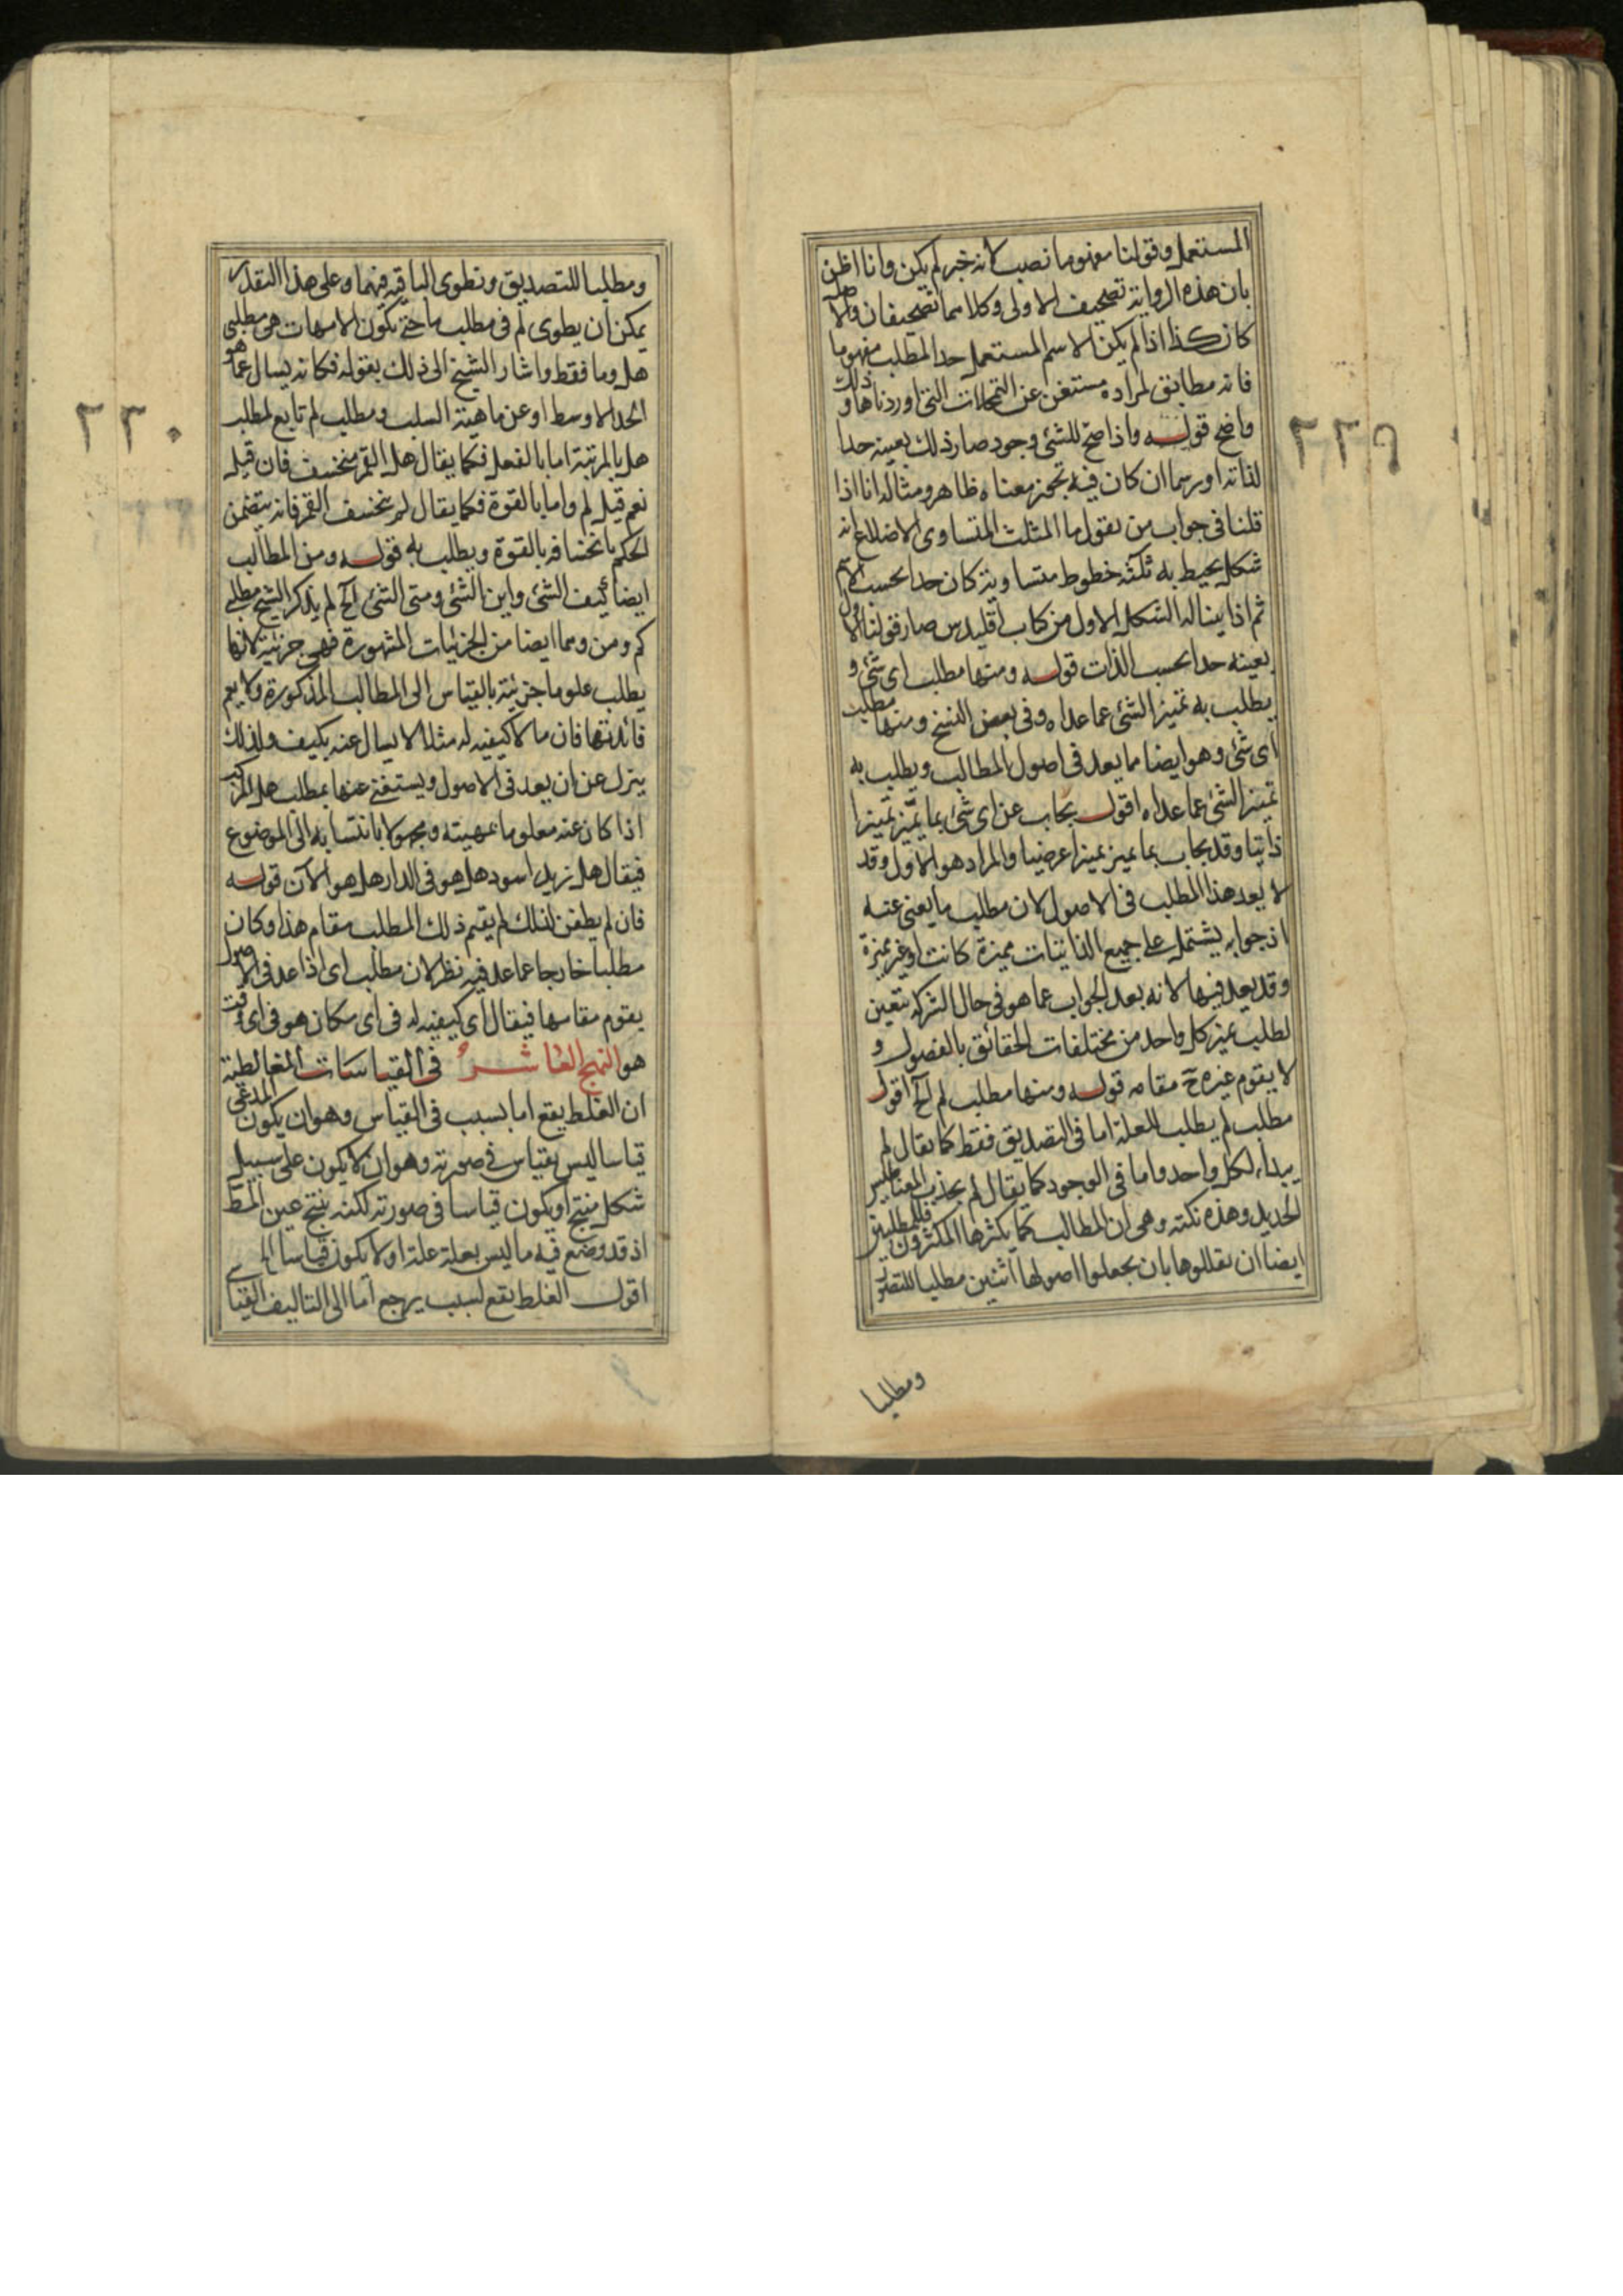 المستعمل وقولنا مفهوما نصب لانه خبر لم يكن وانا اظن
بان هذه الرواية تصحيف الاولى وكلاهما تصحيفان والاصل
كان كذا اذا لم يكن الاسم المستعمل حد المطلب مفهوما
فانه مطابق لمراده مستغن عن التمحلات التى اوردناها وذلك
واضح قوله واذا صح للشئ وجود صار ذلك بعينه حدا
لذاته او رسما ان كان فيه تجوز معناه ظاهر ومثاله انا اذا
قلنا فى جواب من يقول ما المثلث المتساوى الاضلاع انه
شكل يحيط به ثلثة خطوط متساوية كان حدا بحسب الاسم
ثم اذا بينا له الشكل الاول من كتاب اقليدس صار قولنا الاول
بعينه حدا بحسب الذات قوله ومنها مطلب اى شئ و
يطلب به تميز الشئ عما عداه وفى بعض النسخ ومنها مطلب
اى شئ وهو ايضا مما يعد فى اصول المطالب ويطلب به
تميز الشئ عما عداه اقول يجاب عن اى شئ بما يميز تميزا
ذاتيا وقد يجاب بما يميز تميزا عرضيا والمراد هو الاول وقد
لا يعد هذا المطلب فى الاصول لان مطلب ما يغنى عنه
اذ جوابه يشتمل على جميع الذاتيات مميزة كانت او غير مميزة
وقد يعد فيها لانه بعد الجواب عما هو فى حال الشركة يتعين
لطلب تميز كل واحد من مختلفات الحقائق بالفصول و
لا يقوم غيره ح مقامه قوله ومنها مطلب لم الخ اقول
مطلب لم يطلب العلة اما فى التصديق فقط كما يقال لم
لكل واحد واما فى الوجود كما يقال لم يجذب المغناطيس
الحديد وهذه نكتة وهى ان المطالب كما يكثرها المكثرون فللمقللين
ايضا ان يقللوها بان يجعلوا اصولها اثنين مطلبا للتصور
ومطلبا
٢٢٩
ومطلبا للتصديق ونطوى الباقية فيهما وعلى هذا التقدير
يمكن ان يطوى لم فى مطلب ما حتى يكون الامهات هى مطلبى
هل وما فقط واشار الشيخ الى ذلك بقوله فكانه يسال عما هو
الحد الاوسط او عن ماهية السبب ومطلب لم تابع لمطلب
هل بالمرتبة اما بالفعل فكما يقال هل القمر منخسف فان قيل
نعم قيل لم واما بالقوة فكما يقال لم ينخسف القمر فانه يتضمن
الحكم بانخسافه بالقوة ويطلب به قوله ومن المطالب
ايضا كيف الشئ واين الشئ ومتى الشئ الخ لم يذكر الشيخ مطلبى
كم ومن وهما ايضا من الجزئيات المشهورة فهى جزئية لانها
يطلب علوما جزئية بالقياس الى المطالب المذكورة ولا يعم
فائدتها فان ما لا كيفية له مثلا لا يسال عنه بكيف ولذلك
ينزل عن ان يعد فى الاصول ويستغنى عنها بمطلب هل المركب
اذا كان عنه معلوما بمهيته ومجهولا بانتسابه الى الموضوع
فيقال هل زيد اسود هل هو فى الدار هل هو الآن قوله
فان لم يطفن لذلك لم يقيم ذلك المطلب مقام هذا وكان
مطلبا خارجا عما عد فيه نظر لان مطلب اى اذا عد فى الاصول
يقوم مقامها فيقال اى كيفية له فى اى مكان هو فى اى وقت
هو النهج العاشر فى القياسات المغالطية
ان الغلط يقع اما بسبب فى القياس وهو ان يكون المدعى
قياسا ليس بقياس فى صورته وهو ان لا يكون على سبيل
شكل منتج او يكون قياسا فى صورته لكنه ينتج عين المط
اذ قد وضع فيه ما ليس بعلة علة او لا يكون قياسا الخ
اقول الغلط يقع لسبب يرجع اما الى التاليف القياسى
٢٢٠